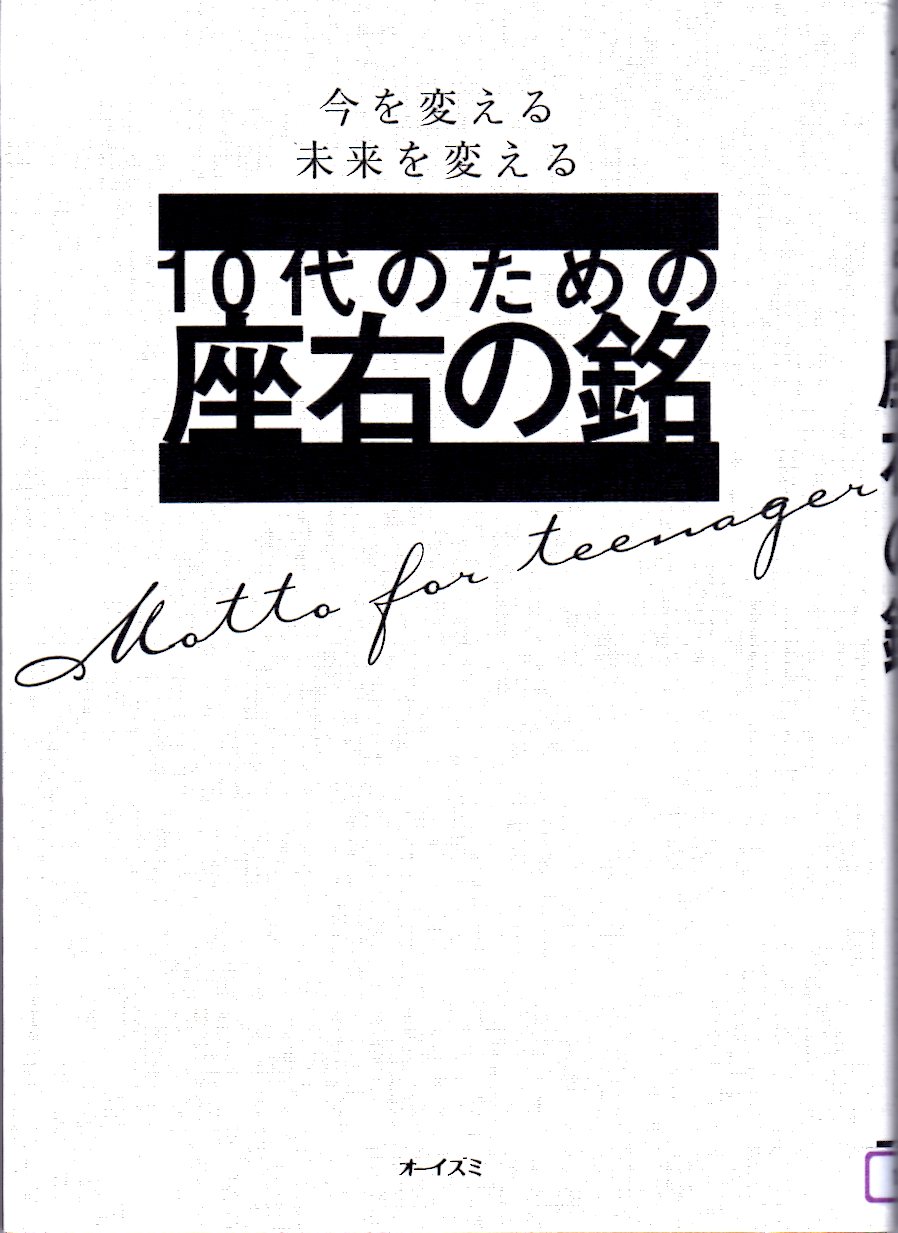 今を変える
未来を変える
10代のための
座右の銘
Motto for teenager
オーイズミ
座右の銘